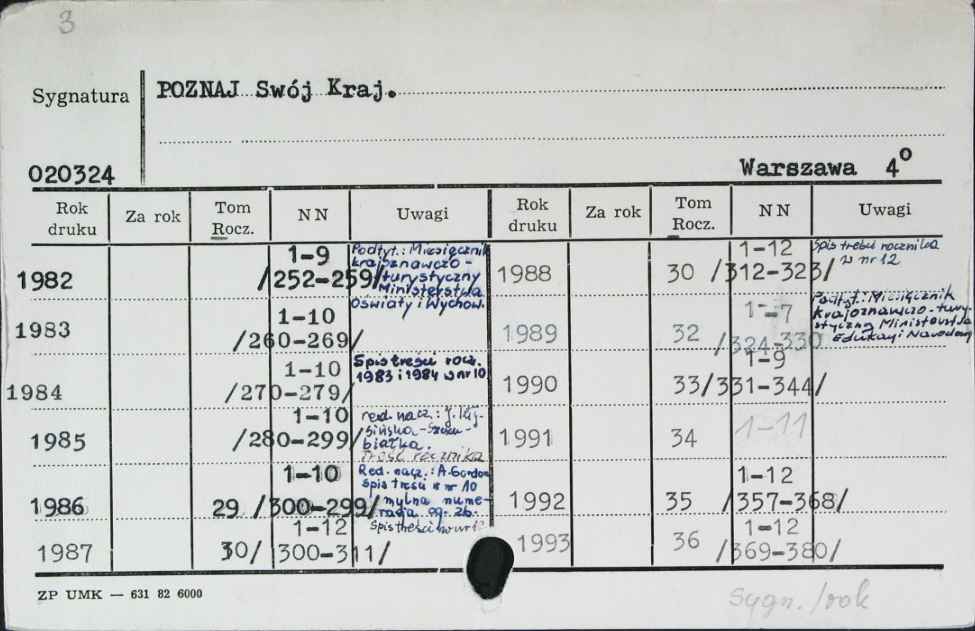 3
Sygnatura
POZNAJ Swój Kraj.
020324
Warszawa 4°
Rok druku Za rok Tom Rocz. NN Uwagi Rok druku Za rok Tom Rocz. NN Uwagi
1982 1-9 /252-259/ Podtyt.: Miesięcznik
krajoznawczo-
turystyczny
Ministerstwa
Oświaty i Wychow.
1983 1-10 /260-269/
1984 1-10 /270-279/ Spis treści rocz.
1983 i 1984 w nr 10
1985 1-10 /280-299/ red. nacz.:
białka.
Treść rocznika
1986 29 1-10 /300-299/ Red. nacz.: A. Gordon
Spis treści w nr 10
mylna nume-
racja og. zb.
1987 30/ 1-12 /300-311/ Spis treści w nr 12
1988 30 1-12 /312-323/ Spis treści rocznika
w nr 12
1989 32 1-7 /324-330 Podtyt.: Miesięcznik
Krajoznawczo-tury-
styczny Ministerstwa
Edukacji Narodowej
1990 33 1-9 /331-344/
1991 34 1-11
1992 35 1-12 /357-368/
1993 36 1-12 /369-380/
ZP UMK — 631 82 6000
Sygn./rok